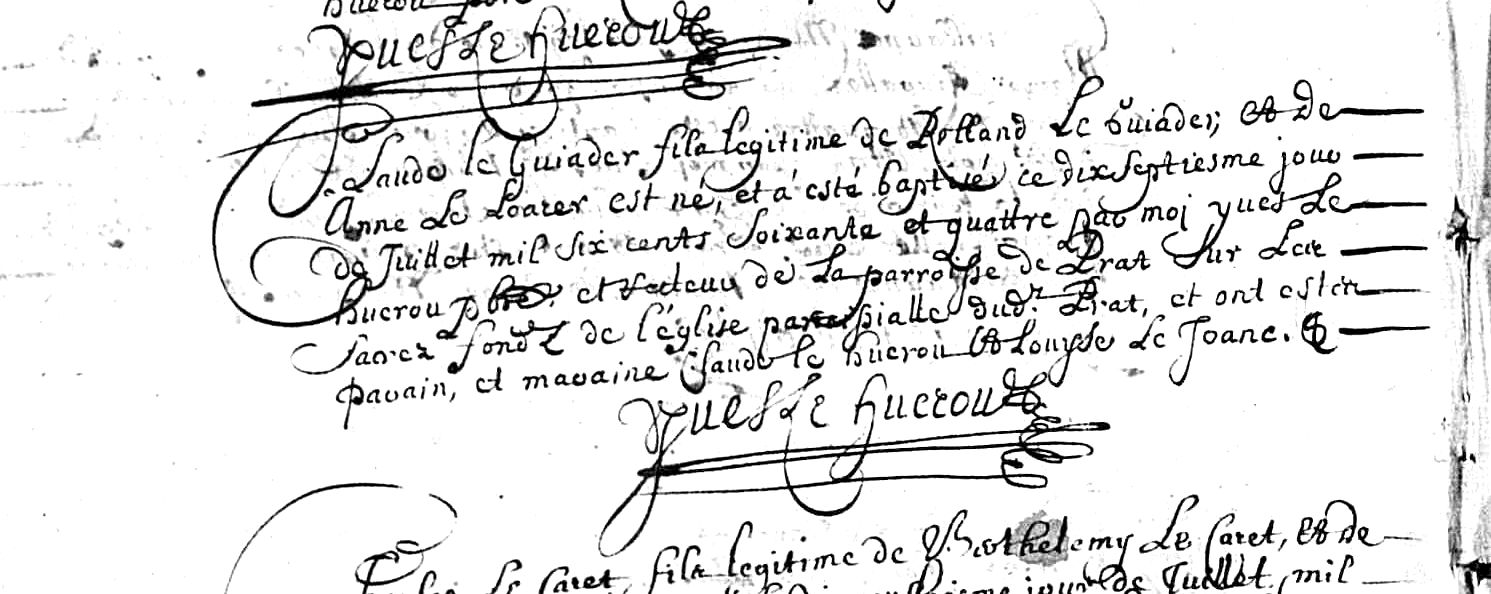 huerou pbre
Yues Le huerou
Claude le Guiader fils legitime de Rolland Le Guiader, et de
Anne Le Loarer est né, et à esté baptisé ce dixseptiesme jour
de Juillet mil six cents soixante et quattre par moi yues Le
huerou pbre. et recteur de la parroisse de Prat sur Les
sacrez fonds de l'église parroissialle dudt. Prat, et ont estés
parain, et maraine Claude le huerou et Louyse Le Joanc. &
Yues Le huerou
Le Caret, fils legitime de Barthelemy Le Caret, et de
jour de Juillet, mil